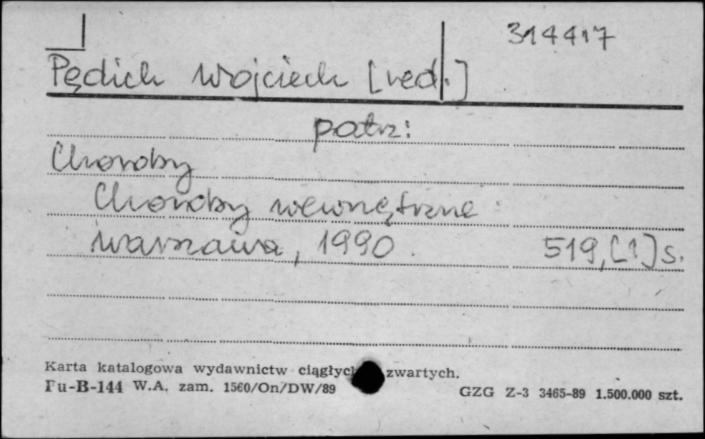 314417
Pędich Wojciech [red.]
patrz:
Choroby
Choroby wewnętrzne
Warszawa, 1990. 519, [1] s.
Karta katalogowa wydawnictw ciągłych zwartych.
Pu-B-144 W.A. zam. 1560/On/DW/89 GZG Z-3 3465-89 1.500.000 szt.